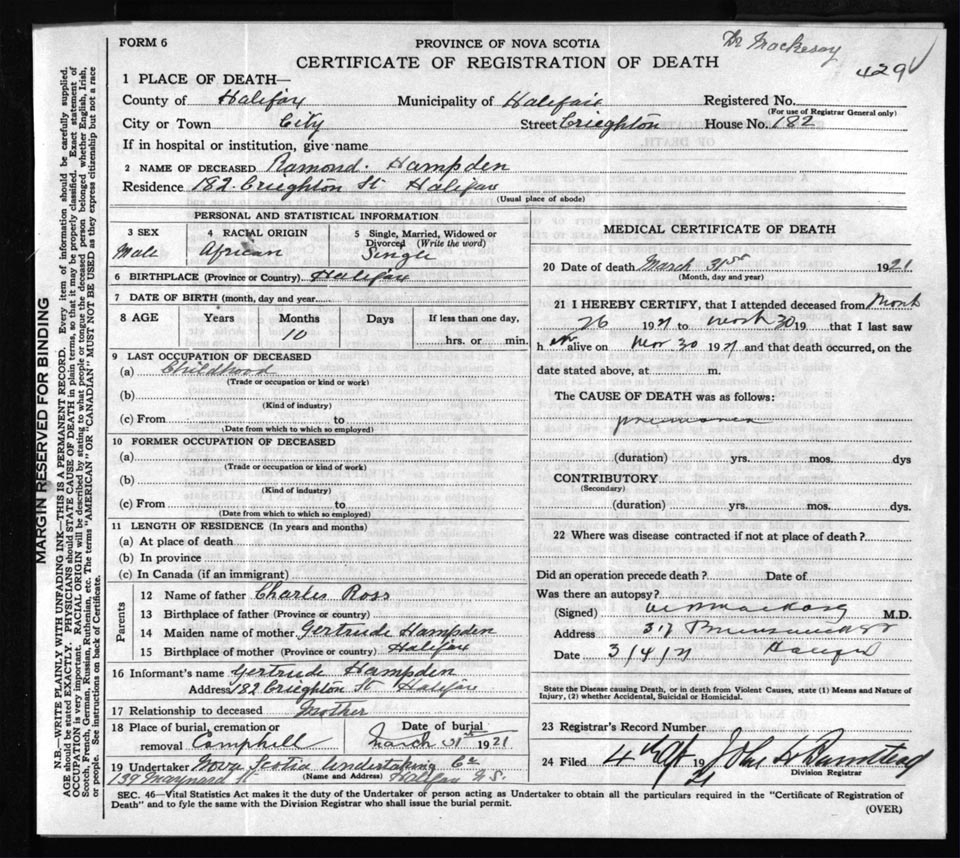 FORM 6
PROVINCE OF NOVA SCOTIA
Dr
CERTIFICATE OF REGISTRATION OF DEATH
429
1 PLACE OF DEATH—
County of Halifax Municipality of Halifax Registered No.
(For use of Registrar General only)
City or Town City Street Crieghton House No. 182
If in hospital or institution, give name
2 NAME OF DECEASED Ramond. Hampden
Residence 182 Crieghton St Halifax
(Usual place of abode)
PERSONAL AND STATISTICAL INFORMATION
3 SEX 4 RACIAL ORIGIN 5 Single, Married, Widowed or Divorced (Write the word)
Male African Single
6 BIRTHPLACE (Province or Country) Halifax
7 DATE OF BIRTH (month, day and year)
8 AGE Years Months Days If less than one day,
10 hrs. or min.
9 LAST OCCUPATION OF DECEASED
(a) Childhood
(Trade or occupation or kind or work)
(b)
(Kind of industry)
(c) From to
(Date from which to which so employed)
10 FORMER OCCUPATION OF DECEASED
(a)
(Trade or occupation or kind of work)
(b)
(Kind of industry)
(c) From to
(Date from which to which so employed)
11 LENGTH OF RESIDENCE (In years and months)
(a) At place of death
(b) In province
(c) In Canada (if an immigrant)
Parents
12 Name of father Charles Ross
13 Birthplace of father (Province or country)
14 Maiden name of mother Gertrude Hampden
15 Birthplace of mother (Province or country) Halifax
16 Informant's name Gertrude Hampden
Address 182 Crieghton St Halifax
17 Relationship to deceased Mother
18 Place of burial, cremation or Date of burial
removal Camphill March 31st 1921
19 Undertaker Nova Scotia Undertaking Co
139 Maynard St (Name and Address) Halifax N.S.
MEDICAL CERTIFICATE OF DEATH
20 Date of death March 31st 1921
(Month, day and year)
21 I HEREBY CERTIFY, that I attended deceased from March
26 1921 to March 30 19 that I last saw
h im alive on Mar 30 1921 and that death occurred, on the
date stated above, at m.
The CAUSE OF DEATH was as follows:
pneumonia
(duration) yrs. mos. dys
CONTRIBUTORY
(Secondary)
(duration) yrs. mos. dys.
22 Where was disease contracted if not at place of death?
Did an operation precede death? Date of
Was there an autopsy?
(Signed) M.D.
Address 317 Brunswick St
Date 3/4/21 Halifax
State the Disease causing Death, or in death from Violent Causes, state (1) Means and Nature of
Injury, (2) whether Accidental, Suicidal or Homicidal.
23 Registrar's Record Number
24 Filed 4th 1921 John
Division Registrar
SEC. 46—Vital Statistics Act makes it the duty of the Undertaker or person acting as Undertaker to obtain all the particulars required in the "Certificate of Registration of
Death" and to fyle the same with the Division Registrar who shall issue the burial permit.
(OVER)
MARGIN RESERVED FOR BINDING
N.B.—WRITE PLAINLY WITH UNFADING INK—THIS IS A PERMANENT RECORD. Every item of information should be carefully supplied.
AGE should be stated EXACTLY. PHYSICIANS should STATE CAUSE OF DEATH in plain terms, so that it may be properly classified. Exact statement of
OCCUPATION is very important. RACIAL ORIGIN will be described by stating to what people or tongue the deceased person belonged whether English, Irish,
Scotch, French, German, Russian, Ruthenian, etc. The terms "AMERICAN" OR "CANADIAN" MUST NOT BE USED as they express citizenship but not a race
or people. See instructions on back of Certificate.